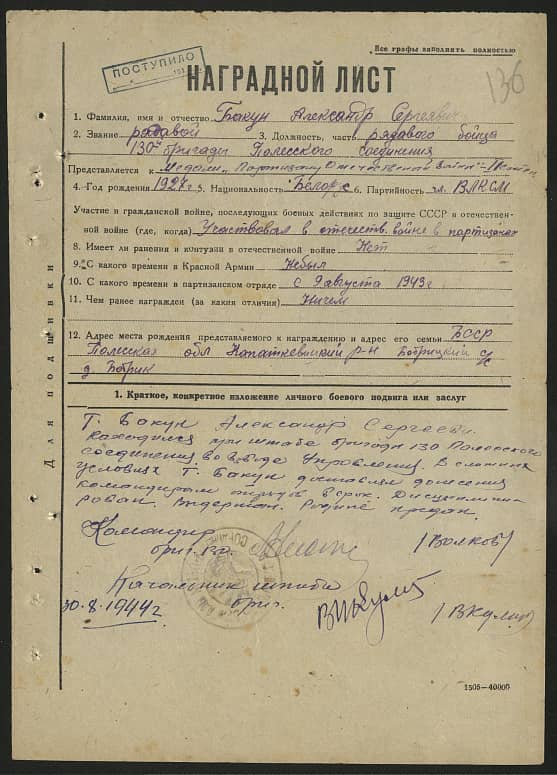 Все графы заполнять полностью
ПОСТУПИЛО
136
НАГРАДНОЙ ЛИСТ
1. Фамилия, имя и отчество Бакун Александр Сергеевич
2. Звание рядовой 3. Должность, часть рядового бойца
130й бригады Полесского соединения
Представляется к Медали „Партизану Отечественной Войны" II степен
4. Год рождения 1927 г 5. Национальность Белорус 6. Партийность чл. ВЛКСМ
Участие в гражданской войне, последующих боевых действиях по защите СССР и отечествен-
ной войне (где, когда) Участвовал в отечеств. войне в партизанах
8. Имеет ли ранения и контузии в отечественной войне Нет
9. С какого времени в Красной Армии Небыл
10. С какого времени в партизанском отряде с 9 августа 1943 г
11. Чем ранее награжден (за какия отличия) Ничем
12. Адрес места рождения представляемого к награждению и адрес его семьи БССР
Полесская обл Копаткевичский р-н Бобрицкий с/с
д Бобрик
Для подшивки
1. Краткое, конкретное изложение личного боевого подвига или заслуг
Т. Бакун Александр Сергееви.
находился при штабе бригады 130 Полесского
соединения во взводе Управления. В
условиях т. Бакун доставлял донесения
командирам в срок. Дисциплини-
рован. Выдержан. Родине предан.
Командир
бриг. /Волков/
Начальник штаба
30.8.1944 г. бриг. /В Кулик/
1505—40000